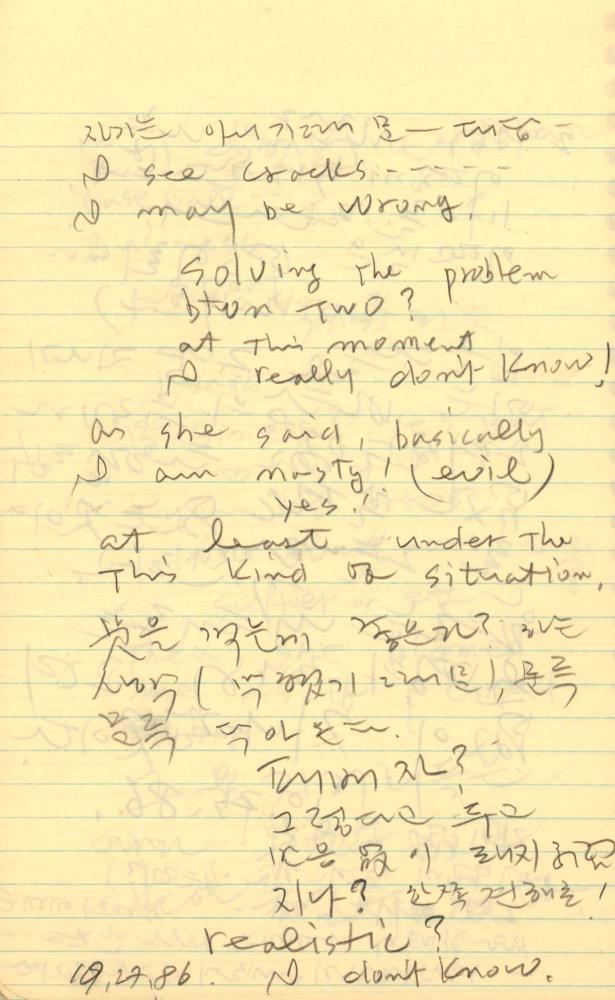 자기는 아니기 때문 —
I see cracks - - - - - -
I may be wrong.
Solving the problem
btwn TWO?
at this moment
I really don't know!
as she said, basically
I am nasty! (evil)
yes!
at least under the
This kind of situation.
꽃을 꺾는게 좋은가? 하는
생각 ( 기 때문), 문득
문득
패배자?
그렇다고 두고
이
지나? 한쪽 견해를!
realistic?
I don't know.